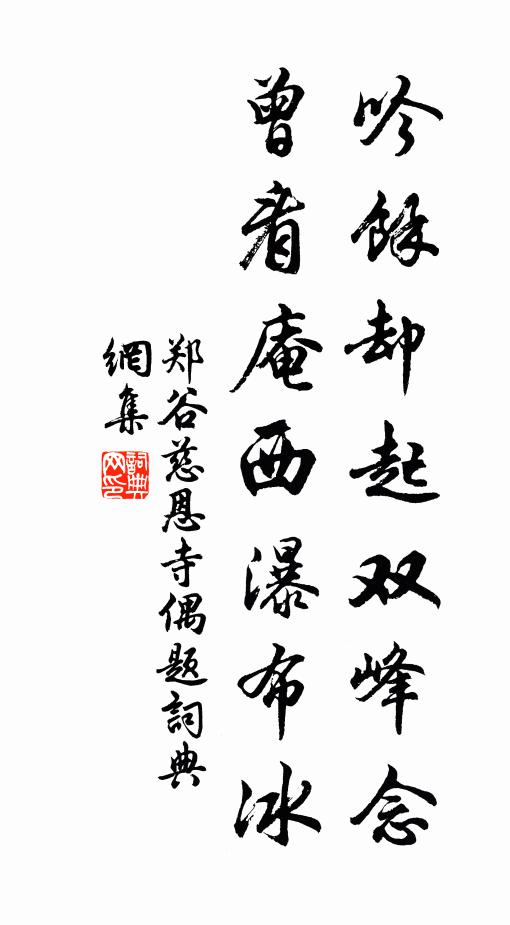 吟馀却起双峰念
曾看庵西瀑布冰
郑谷慈恩寺偶题詞典
網集
詞典网印